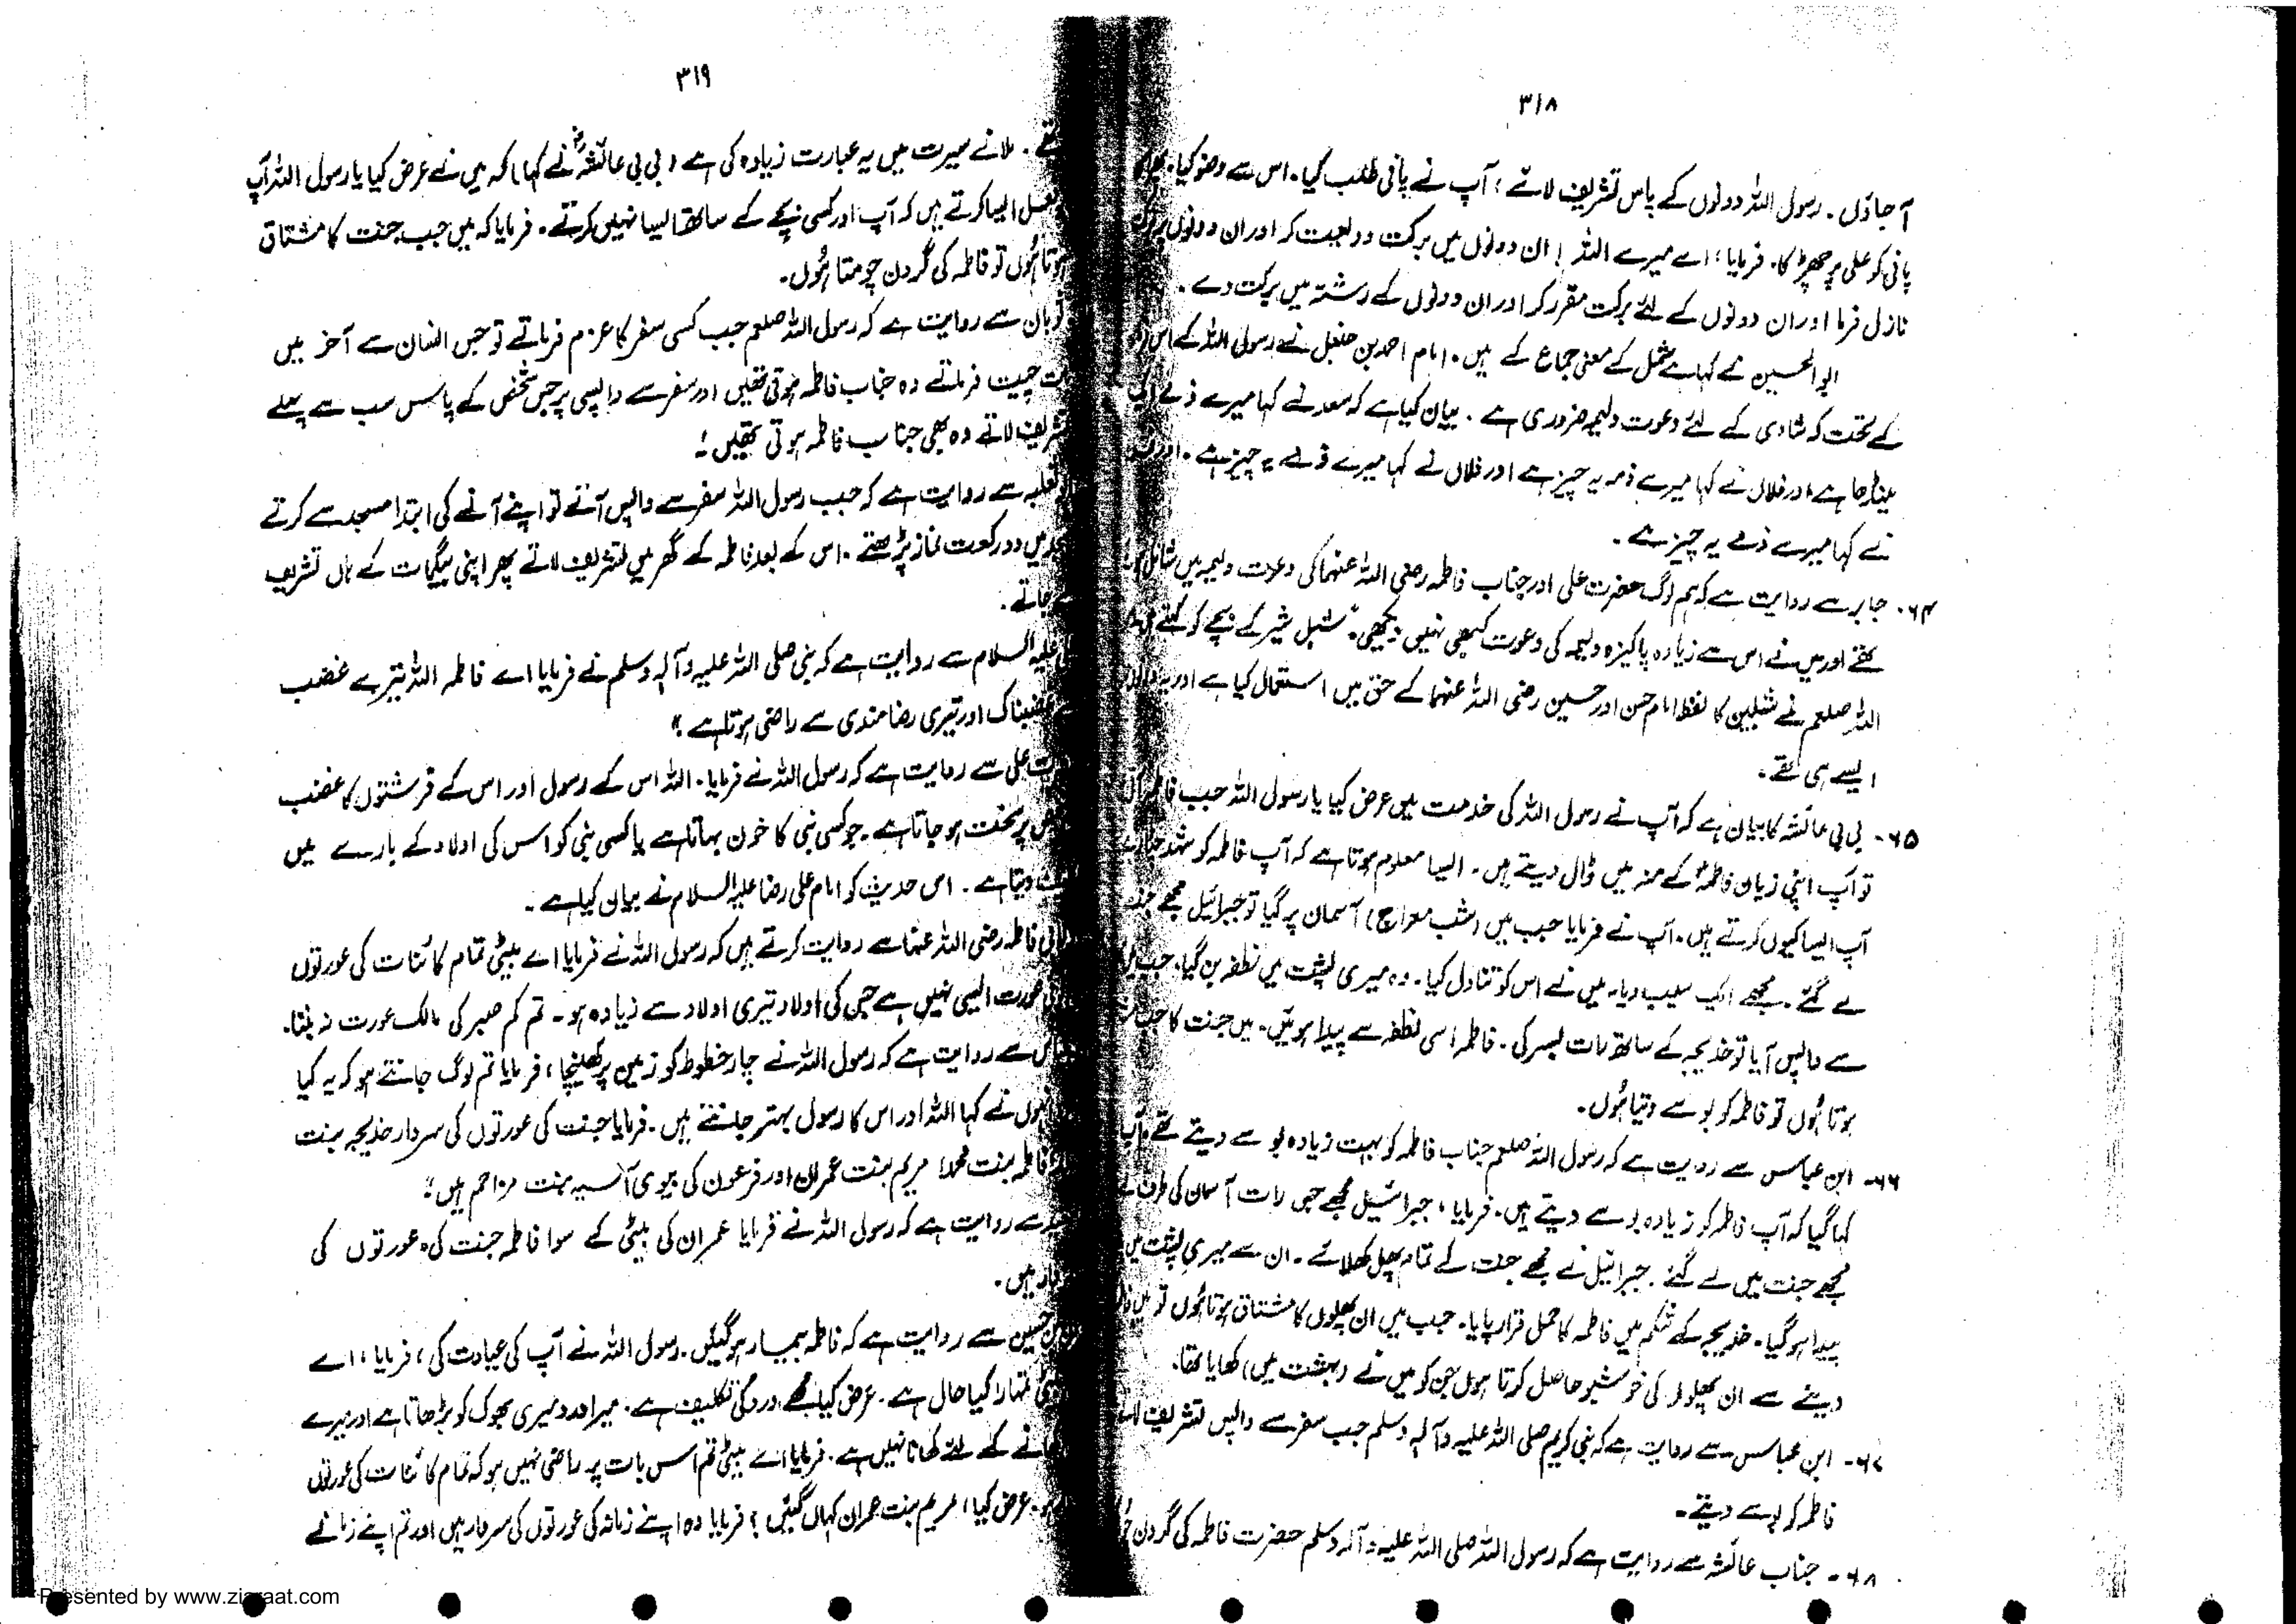 ۳۱۸
آجاؤں ۔ رسول اللہ دونوں کے پاس تشریف لائے ؛ آپ نے پانی طلب کیا ۔ اس سے وضو کیا ۔
پانی کو علی پر چھڑکا ۔ فرمایا ؛ اے میرے اللہ ! ان دونوں میں برکت ودلعیت کر اور ان دونوں پر برکت
نازل فرما اور ان دونوں کے لئے برکت مقرر کر اور ان دونوں کے رشتہ میں برکت دے ۔
ابو الحسین نے کہا ہے شمل کے معنی جماع کے ہیں ۔ امام احمد بن حنبل نے رسول اللہ کے اس
کے تحت کہ شادی کے لئے دعوت ولیمہ ضروری ہے ۔ بیان کیا ہے کہ سعد نے کہا میرے ذمے ایک
مینڈھا ہے اور فلاں نے کہا میرے ذمہ یہ چیز ہے اور فلاں نے کہا میرے ذمے یہ چیز ہے ۔
نے کہا میرے ذمے یہ چیز ہے ۔
۶۴۔ جابر سے روایت ہے کہ ہم لوگ حضرت علی اور جناب فاطمہ رضی اللہ عنہما کی دعوت ولیمہ میں شامل
تھے اور میں نے اس سے زیادہ پاکیزہ ولیمہ کی دعوت کبھی نہیں دیکھی ۔" شبل شیر کے بچے کو کہتے
اللہ صلعم نے شبلین کا لفظ امام حسن اور حسین رضی اللہ عنہما کے حق میں استعمال کیا ہے اور یہ دونوں
ایسے ہی تھے ۔
۶۵۔ بی بی عائشہ کا بیان ہے کہ آپ نے رسول اللہ کی خدمت میں عرض کیا یا رسول اللہ جب فاطمہ آتی
تو آپ اپنی زبان فاطمہؑ کے منہ میں ڈال دیتے ہیں ۔ ایسا معلوم ہوتا ہے کہ آپ فاطمہ کو شہد
آپ ایسا کیوں کرتے ہیں ۔ آپ نے فرمایا جب میں (شب معراج) آسمان پر گیا تو جبرائیل مجھے جنت
لے گئے ۔ مجھے ایک سیب دیا ۔ میں نے اس کو تناول کیا ۔ وہ میری پشت میں نطفہ بن گیا ۔ جب میں
سے واپس آیا تو خدیجہ کے ساتھ رات بسر کی ۔ فاطمہ اسی نطفہ سے پیدا ہوئیں ۔ میں جنت کا جب
ہوتا ہوں تو فاطمہ کو بوسے دیتا ہوں ۔
۶۶۔ ابن عباس سے روایت ہے کہ رسول اللہ صلعم جناب فاطمہ کو بہت زیادہ بوسے دیتے تھے ۔ آپ
کہا گیا کہ آپ فاطمہ کو زیادہ بوسے دیتے ہیں ۔ فرمایا ، جبرائیل مجھے جس رات آسمان کی طرف لے
مجھے جنت میں لے گئے ۔ جبرائیل نے مجھے جنت کے تمام پھل کھلائے ۔ ان سے میری پشت میں
پیدا ہو گیا ۔ خدیجہ کے شکم میں فاطمہ کا حمل قرار پایا ۔ جب میں ان پھلوں کا مشتاق ہوتا ہوں تو میں
دینے سے ان پھلوں کی خوشبو حاصل کرتا ہوں جن کو میں نے (بہشت میں) کھایا تھا ۔
۶۷۔ ابن عباس سے روایت ہے کہ نبی کریم صلی اللہ علیہ وآلہ وسلم جب سفر سے واپس تشریف لاتے
فاطمہ کو بوسے دیتے ۔
۶۸۔ جناب عائشہ سے روایت ہے کہ رسول اللہ صلی اللہ علیہ وآلہ وسلم حضرت فاطمہ کی گردن
۳۱۹
تھے ۔ ملا نے سیرت میں یہ عبارت زیادہ کی ہے ( بی بی عائشہؓ نے کہا ) کہ میں نے عرض کیا یا رسول اللہ آپ
ایسا کرتے ہیں کہ آپ اور کسی بچے کے ساتھ ایسا نہیں کرتے ۔ فرمایا کہ میں جب جنت کا مشتاق
ہوتا ہوں تو فاطمہ کی گردن چومتا ہوں ۔
ثوبان سے روایت ہے کہ رسول اللہ صلعم جب کسی سفر کا عزم فرماتے تو جس انسان سے آخر میں
چیت فرماتے وہ جناب فاطمہ ہوتی تھیں اور سفر سے واپسی پر جس شخص کے پاس سب سے پہلے
تشریف لاتے وہ بھی جناب فاطمہ ہوتی تھیں !
ثعلبہ سے روایت ہے کہ جب رسول اللہ سفر سے واپس آتے تو اپنے آنے کی ابتدا مسجد سے کرتے
میں دو رکعت نماز پڑھتے ۔ اس کے بعد فاطمہ کے گھر میں تشریف لاتے پھر اپنی بیگمات کے ہاں تشریف
لے جاتے ۔
علیہ السلام سے روایت ہے کہ نبی صلی اللہ علیہ وآلہ وسلم نے فرمایا اے فاطمہ اللہ تیرے غضب
غضبناک اور تیری رضامندی سے راضی ہوتا ہے ؛"
علی سے روایت ہے کہ رسول اللہ نے فرمایا ۔ اللہ اس کے رسول اور اس کے فرشتوں کا غضب
پر سخت ہو جاتا ہے ۔ جو کسی نبی کا خون بہاتا ہے یا کسی نبی کو اس کی اولاد کے بارے میں
دیتا ہے ۔ اس حدیث کو امام علی رضا علیہ السلام نے بیان کیا ہے ۔
فاطمہ رضی اللہ عنہا سے روایت کرتے ہیں کہ رسول اللہ نے فرمایا اے بیٹی تمام کائنات کی عورتوں
عورت ایسی نہیں ہے جس کی اولاد تیری اولاد سے زیادہ ہو ۔ تم کم صبر کی مالک عورت نہ بننا ۔
سے روایت ہے کہ رسول اللہ نے چار خطوط کو زمین پر کھینچا ، فرمایا تم لوگ جانتے ہو کہ یہ کیا
انہوں نے کہا اللہ اور اس کا رسول بہتر جانتے ہیں ۔ فرمایا جنت کی عورتوں کی سردار خدیجہ بنت
فاطمہ بنت محمدؐ مریم بنت عمران اور فرعون کی بیوی آسیہ بنت مزاحم ہیں ؛
سے روایت ہے کہ رسول اللہ نے فرمایا عمران کی بیٹی کے سوا فاطمہ جنت کی عورتوں کی
ہیں ۔
حسین سے روایت ہے کہ فاطمہ بیمار ہو گئیں ۔ رسول اللہ نے آپ کی عیادت کی ، فرمایا ، اے
تمہارا کیا حال ہے ۔ عرض کیا مجھے درد کی تکلیف ہے ۔ میرا درد میری بھوک کو بڑھاتا ہے اور میرے
کھانے کے لئے کھانا نہیں ہے ۔ فرمایا اے بیٹی تم اس بات پر راضی نہیں ہو کہ تمام کائنات کی عورتوں
عرض کیا ، مریم بنت عمران کہاں گئیں ؟ فرمایا وہ اپنے زمانہ کی عورتوں کی سردار ہیں اور تم اپنے زمانے
Presented by www.ziaraat.com